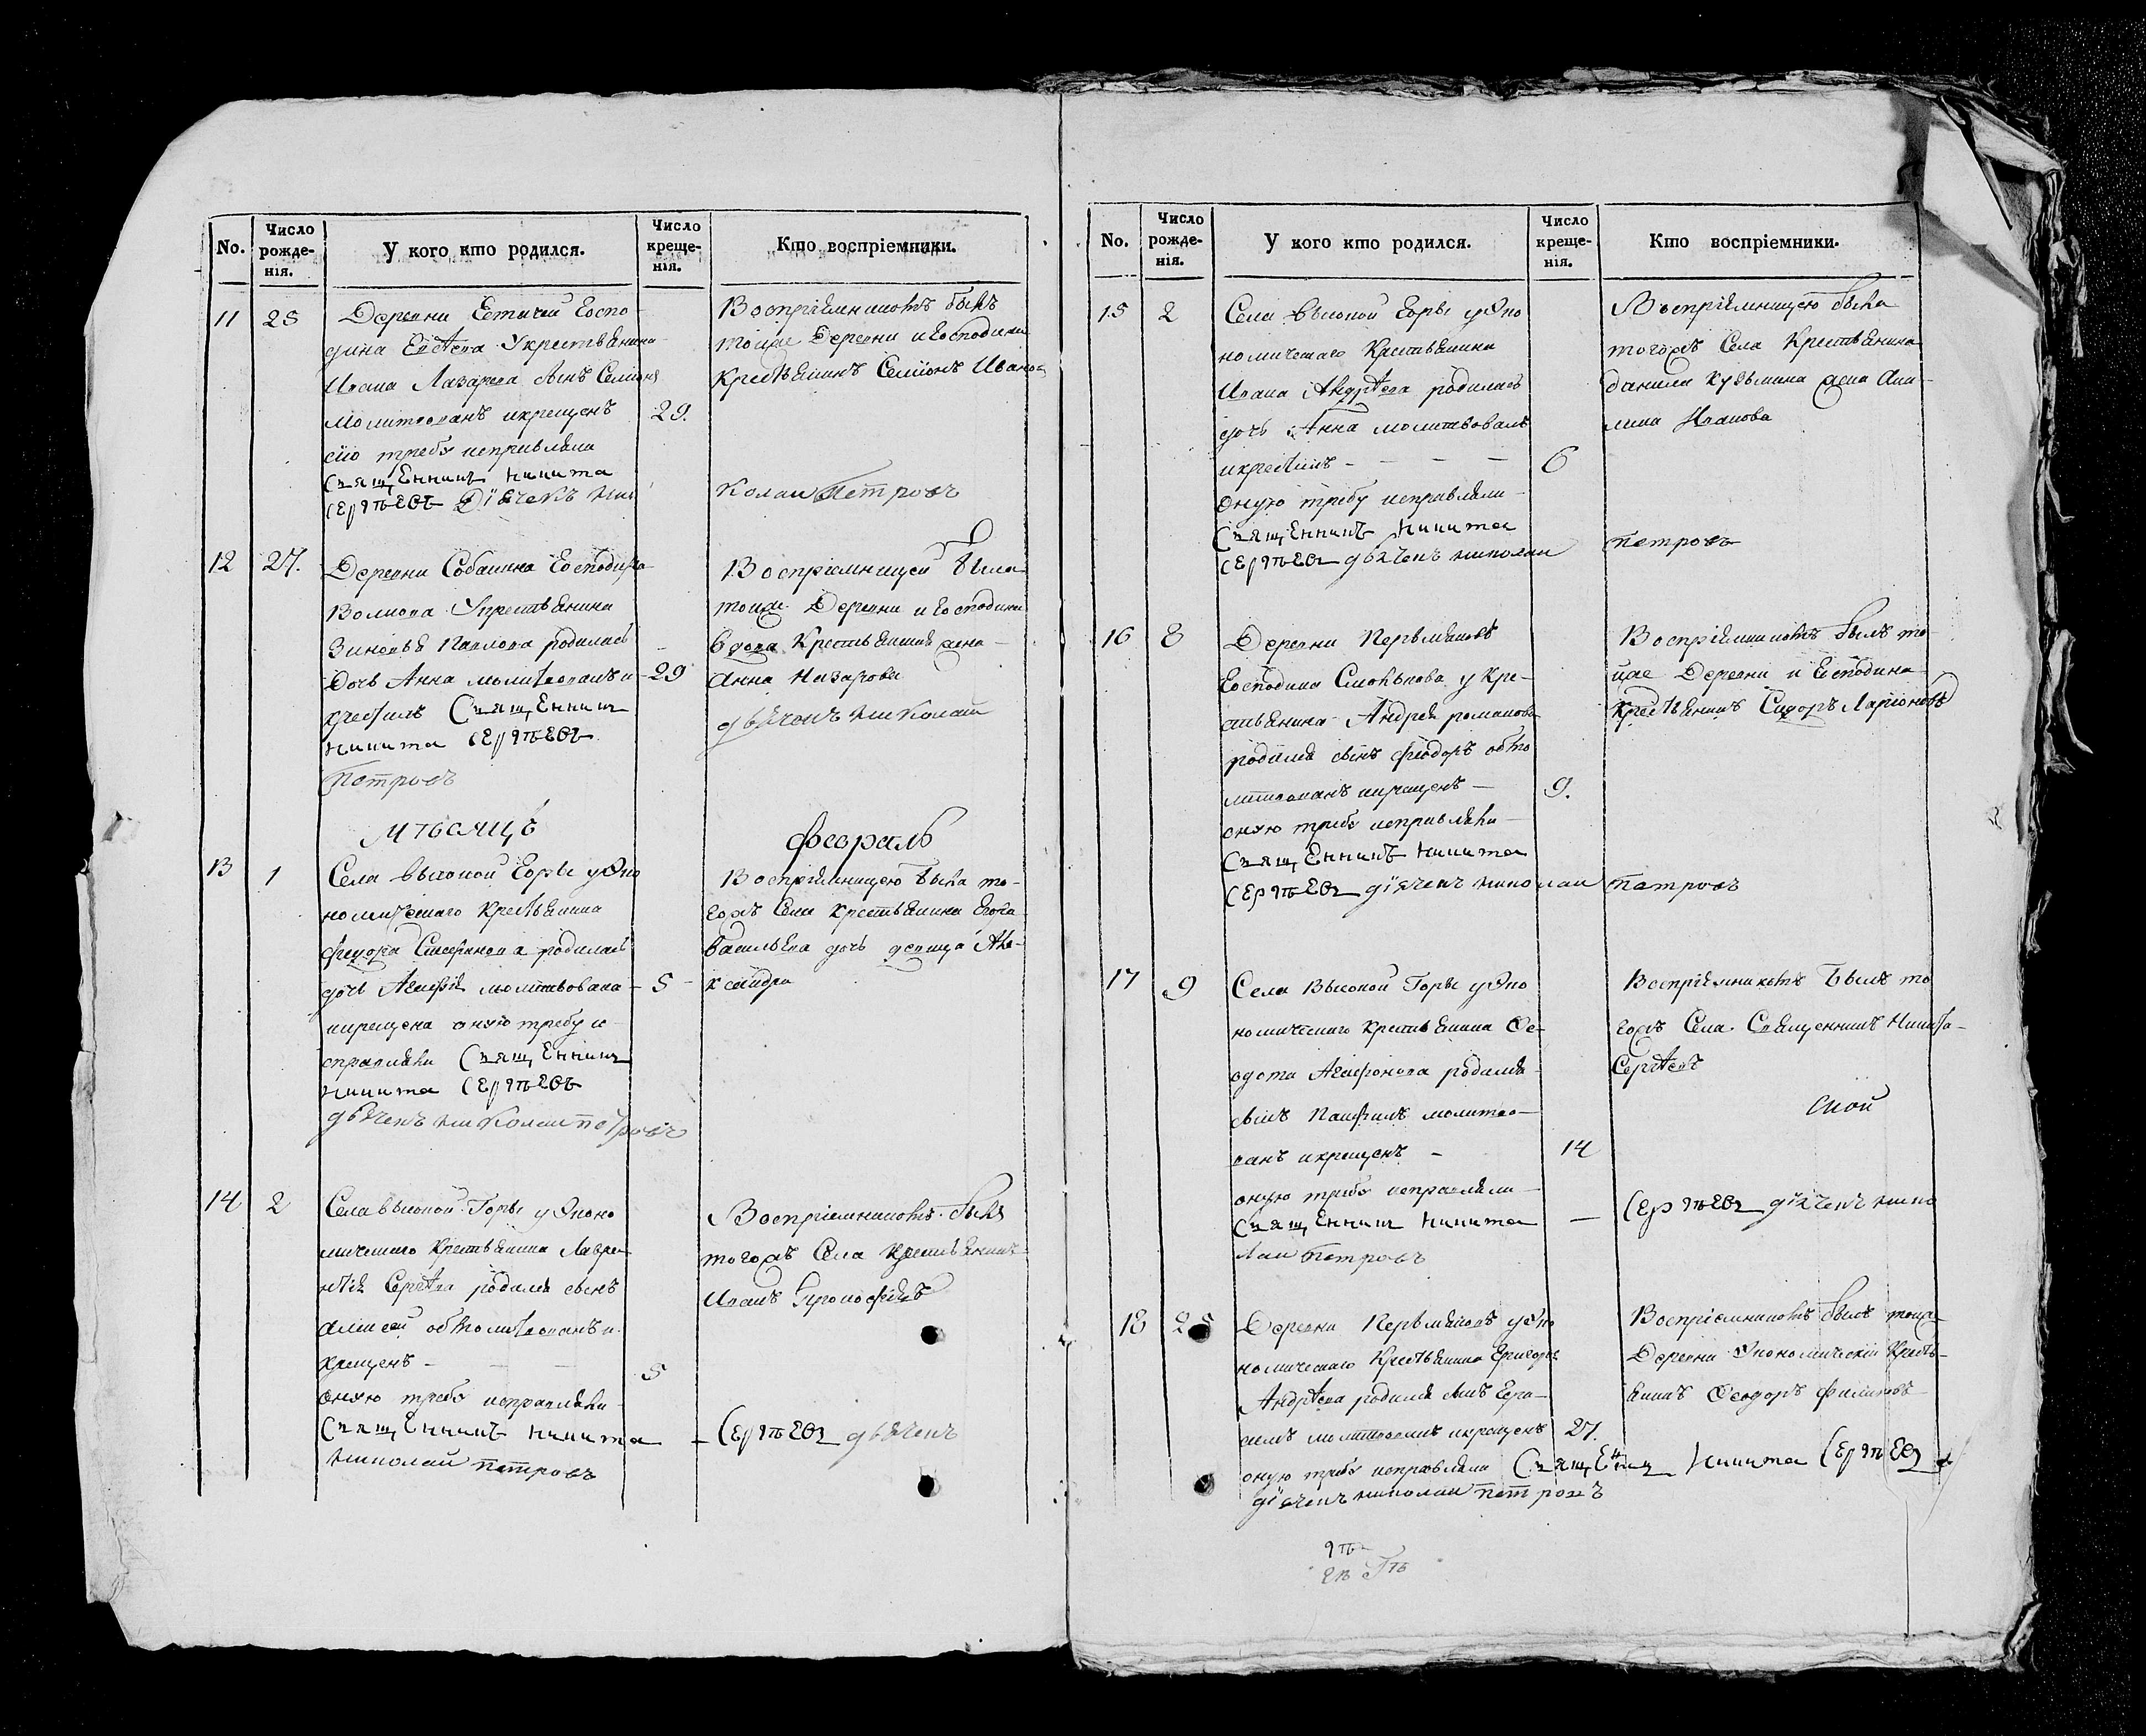 No.
Число рожде-нія.
У кого кто родился.
Число креще-нія.
Кто воспріемники.
11
25
Деревни Естачей Госпо-
дина Евстева Укрестьянина
Ивана Лазарева сынъ Семіонъ
молитвованъ икрещенъ
29.
сію требу исправляли
Священникъ Никита
Сергѣевъ Діячекъ Ни
Воспріемникомъ былъ
тоиже Деревни иГосподина
Крестьянинъ Семіонъ Иванов
колаи Петровъ
12
27.
Деревни Собакина Господина
Волкова Укрестьянина
Зиновья Павлова родилась
Дочь Анна молитвовалъ и
29
крестилъ Священникъ
Никита Сергѣевъ
Петровъ
Воспріемницей была
тоиже Деревни иГосподина
вдова Крестьянская жена
Анна Назарова
дьячекъ Николай
мѣсяцъ
февраль
13
1
Села высокой Горы уЭко
номическаго Крестьянина
федора Стефанова родилась
дочь Агафія молитвована
5
икрещена оную требу и
справляли Священникъ
Никита Сергѣевъ
дьячекъ Николаи петровъ
Воспріемницею была то-
гожъ Села крестьянина
Васильева дочь девица Але-
ксандра
14
2
Села высокой Горы уЭконо
мическаго Крестьянина Лавре-
нтія Сергѣева родился сынъ
Алексей обмолитвованъ и
крещенъ -
5
оную требу исправляли
Священникъ Никита
Николай петровъ
Воспріемникомъ былъ
тогожъ Села крестьянинъ
Иванъ Прокофьевъ
Сергѣевъ дьячекъ
No.
Число рожде-нія.
У кого кто родился.
Число креще-нія.
Кто воспріемники.
15
2
Села высокой Горы уЭко
номическаго Крестьянина
Ивана Андрѣева родилась
дочь Анна молитвовалъ
икрестилъ -
6
оную требу исправляли
Священникъ Никита
Сергѣевъ дьячекъ николаи
Воспріемницею была
тогожъ Села Крестьянина
данила кузьмина жена Аки-
лина Иванова
петровъ
16
8
Деревни Пермяковъ
Господина у Кре-
стьянина Андрея романова
родился сынъ феодоръ обмо
литвованъ икрещенъ -
9.
оную требу исправляли
Священникъ Никита
Сергѣевъ діячекъ николаи
Воспріемникомъ былъ то-
иже Деревни и Господина
крестьянинъ Сидоръ Ларіоновъ
петровъ
17
9
Села Высокой Горы уЭко
номическаго крестьянина Фе-
одота Агафонова родился
сынъ Памфилъ молитво-
ванъ икрещенъ -
14
оную требу исправляли
Священникъ Никита
лаи петровъ
Воспріемникомъ былъ то
гожъ Села Священникъ Никита
Сергѣевъ
Сергѣевъ діячекъ нико
18
25
Деревни Пермяковъ уЭко
номическаго Крестьянина Григорья
Андрѣева родился сынъ Гера-
симъ молитвованъ икрещенъ
27.
оную требу исправляли Священникъ Никита Сергѣевъ
діячекъ николаи петровъ
Воспріемникомъ былъ тоиже
Деревни Экономическій Кресть-
янинъ Феодоръ Филиповъ